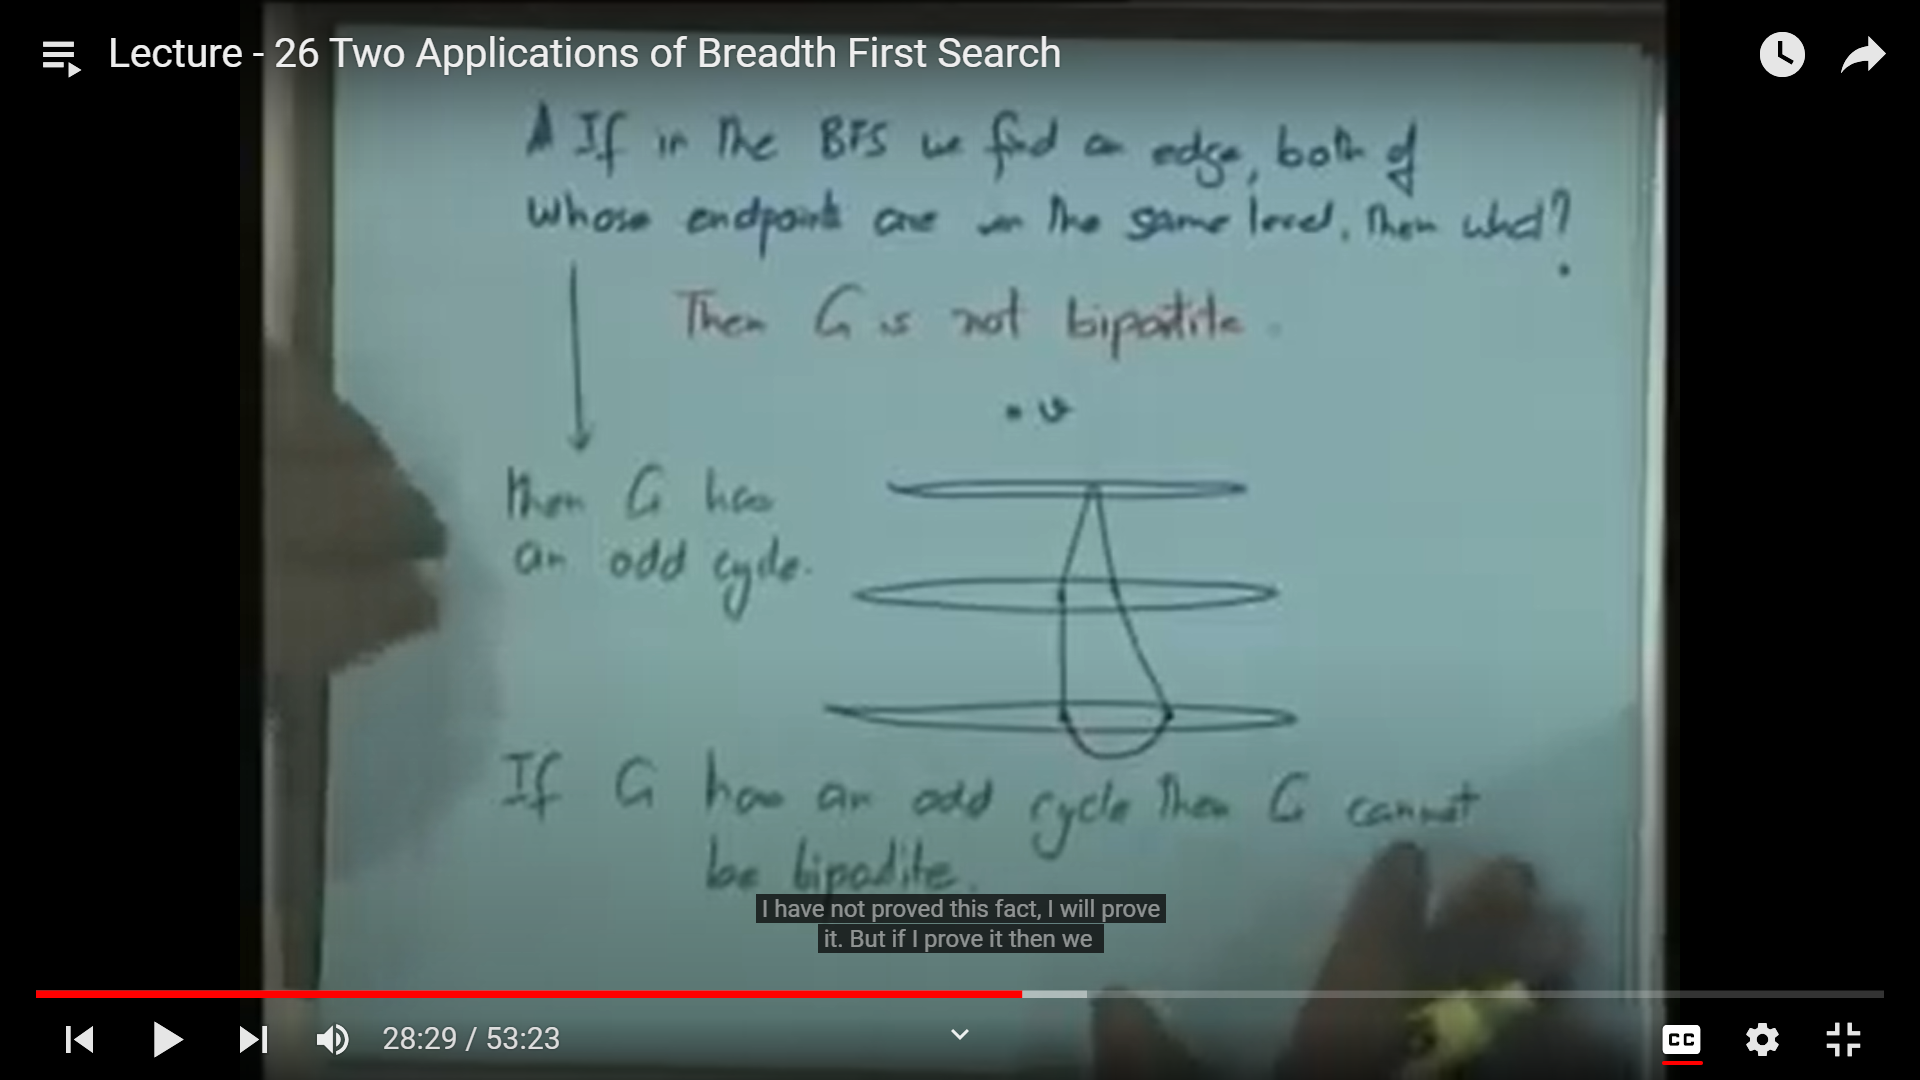 Lecture - 26 Two Applications of Breadth First Search
If in the BFS we find an edge, both of
whose endpoints are in the same level, then what?
Then G is not bipartite.
v
then G has
an odd cycle.
If G has an odd cycle then G cannot
be bipartite.
I have not proved this fact, I will prove
it. But if I prove it then we
28:29 / 53:23
CC